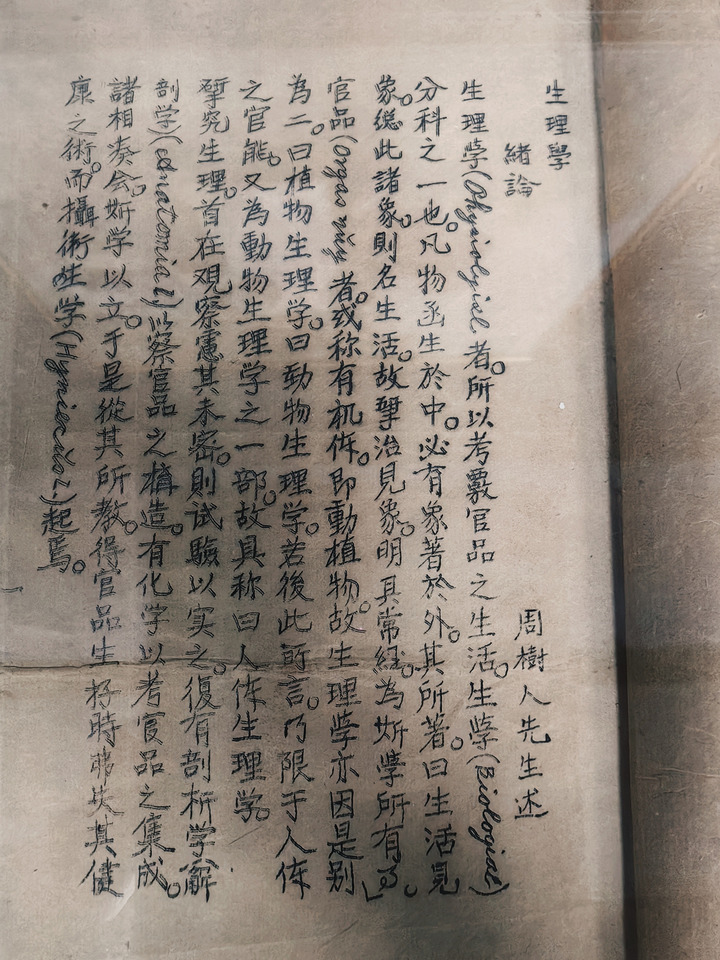 生理學
緒論
周樹人先生述
生理學(Physiologial)者。所以考覈官品之生活。生學(Biologial)
分科之一也。凡物函生於中。必有象著於外。其所著。曰生活見
象。總此諸象。則名生活。故揅治見象。明其常經。為斯學所有事。
官品(Organ 者。或称有机体。即動植物。故生理學亦因是别
為二。曰植物生理学。曰動物生理学。若後此所言。乃限于人体
之官能。又為動物生理学之一部。故具称曰人体生理学。
揅究生理。首在观察。慮其未密。則試驗以实之。復有剖析学(解
剖学)(Anatomial)以察官品之構造。有化学以考官品之集成。
諸相凑会。斯学以立。于是從其所教。得官品生존時弗失其健
康之術。而攝衛生学(Hygieneial)起焉。